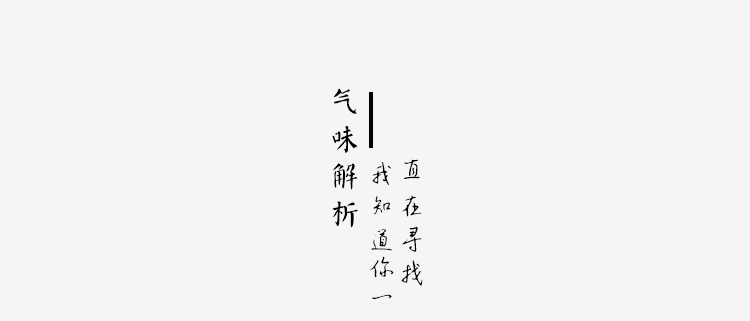 气味解析
我知道你一
直在寻找